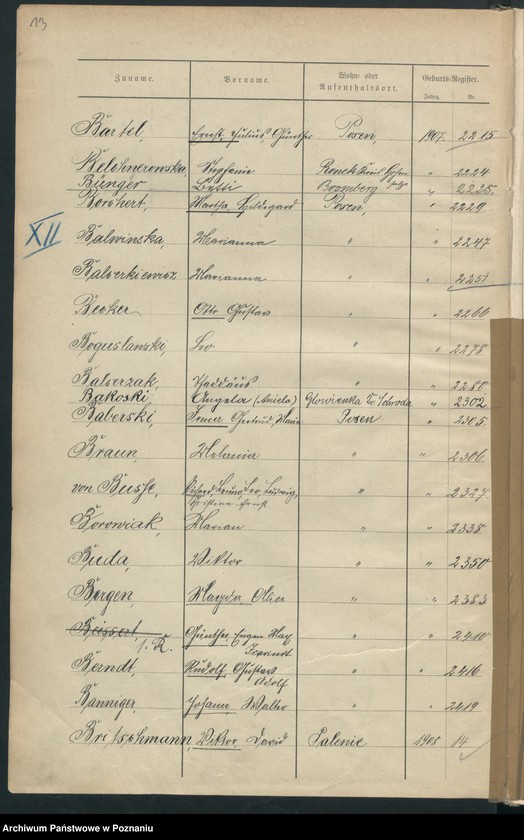 13
Zuname. Vorname. Wohn- oder Aufenthaltsort. Geburts-Register.
Jahrg. Nr.
Bartel, Ernst, Julius, Günther Posen, 1907. 2215
Stephanie " 2224
Bünger Betti Bromberg " 2225.
Borchert, Martha Hildegard Posen, " 2229
XII
Balwinska, Marianna " " 2247
Marianna " " 2251
Becker Otto Gustav " " 2266
Boguslawski, Leo " " 2278
Balcerzak, Thaddäus " 2280
Bakoski, Angela (Aniela) Glowienka Kr. Schroda " 2302
Baberski, Irma Gertrud, Marie Posen " 2305
Braun Melania " " 2306
von Busse, Richard, Bruno, Leo, Ludwig, " " 2327
Christian, Ernst
Borowiak, Marian " " 2338
Buda, Viktor " " 2350
Bergen, Magda Alice " " 2383
Günther, Eugen Max " " 2410
Berndt, Rudolf, Gustav " " 2416
Adolf
Banniger, Johann, Walter " " 2419
Britschmann, Viktor, David Palenie 1908 14
Archiwum Państwowe w Poznaniu